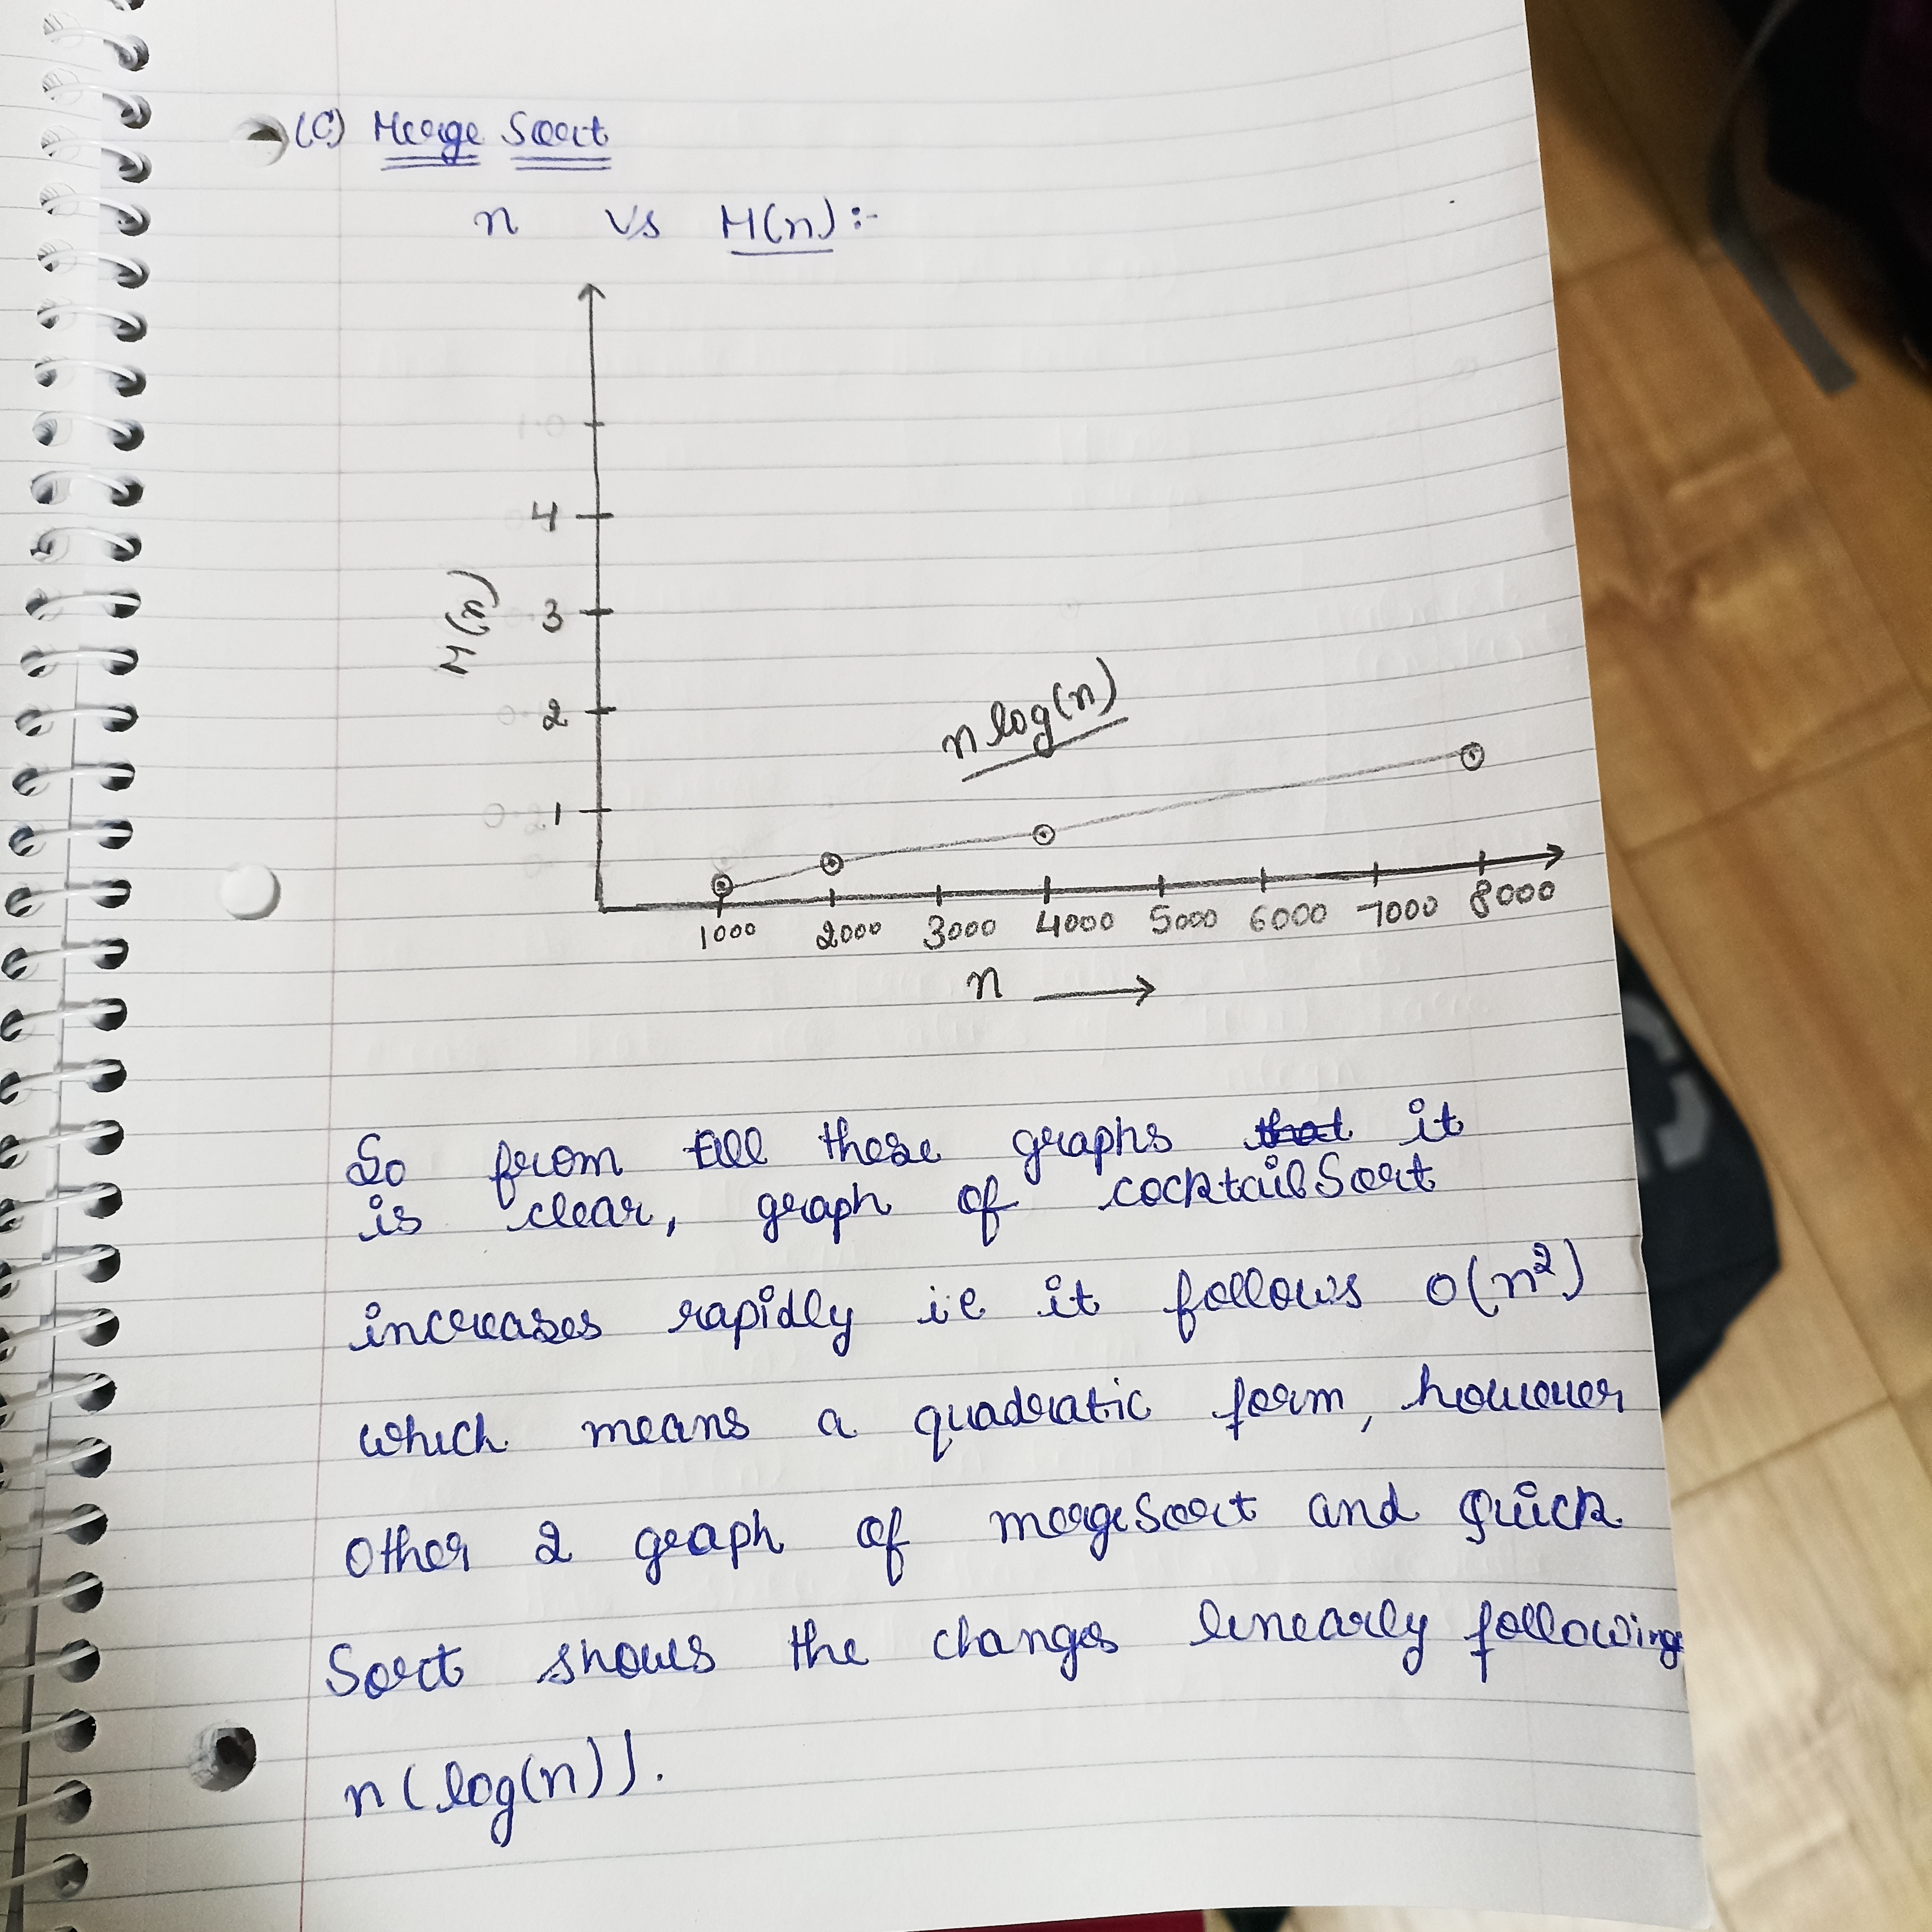 (C) Merge Sort
n vs M(n):-
4
3
M(n)
2
1
n log(n)
1000 2000 3000 4000 5000 6000 7000 8000
n
So from all these graphs that it
is clear, graph of cocktailSort
increases rapidly i.e it follows O(n²)
which means a quadratic form, however
other 2 graph of mergeSort and Quick
Sort shows the changes linearly following
n(log(n)).